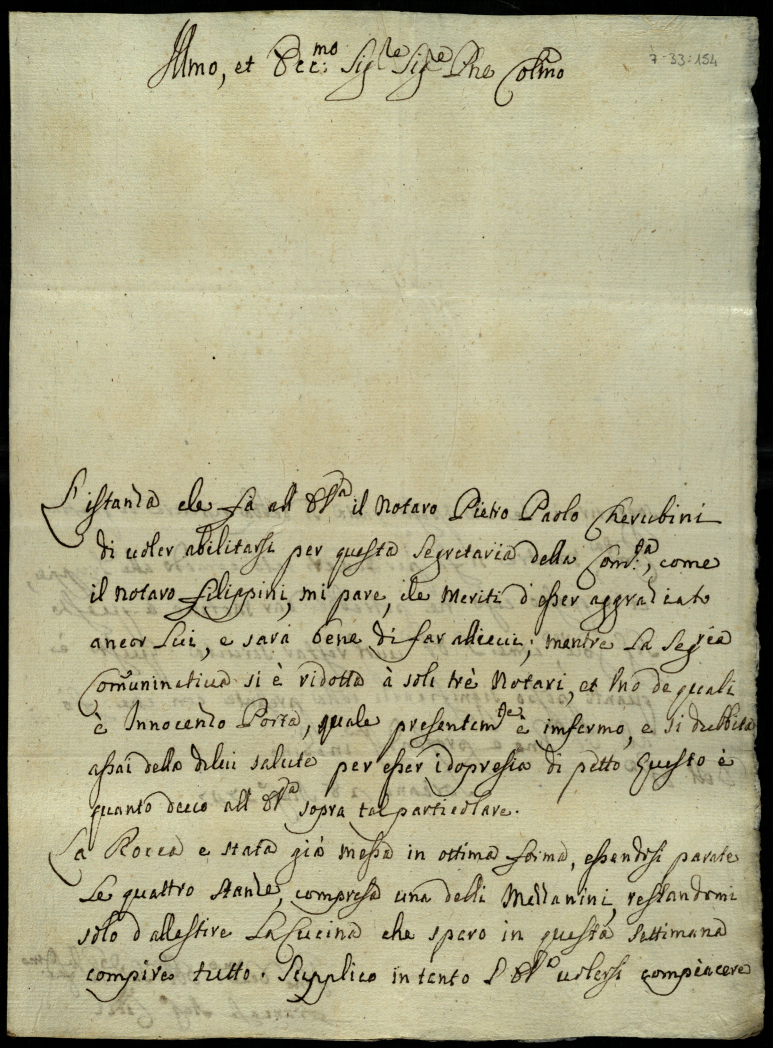 Illmo, et Ecc:mo Sigre Sigre Pne Colmo
7-33:154
L'istanza che fà all' E.Va il Notaro Pietro Paolo Cherubini
di voler abilitarsi per questa Segretaria della Com:tà, come
il Notaro Filippini, mi pare, che meriti d'esser aggraziato
ancor Lui, e sarà bene di far
mentre La Segria
Comunìnativa si è ridotta à soli trè Notari, et Uno de quali
è Innocenzo Porta, quale presentemte è infermo, e si dubbita
assai della dilui salute per esser idopresia di petto Questo è
quanto devo all' E.Va sopra tal particolare.
La Rocca e stata già messa in ottima forma, essendosi parate
Le quattro stanze, compresa una delli Mezzanini, restandomi
solo d'allestire La Cucina che spero in questa settimana
compire tutto. Supplico intanto L'E.Va volersi compiacere